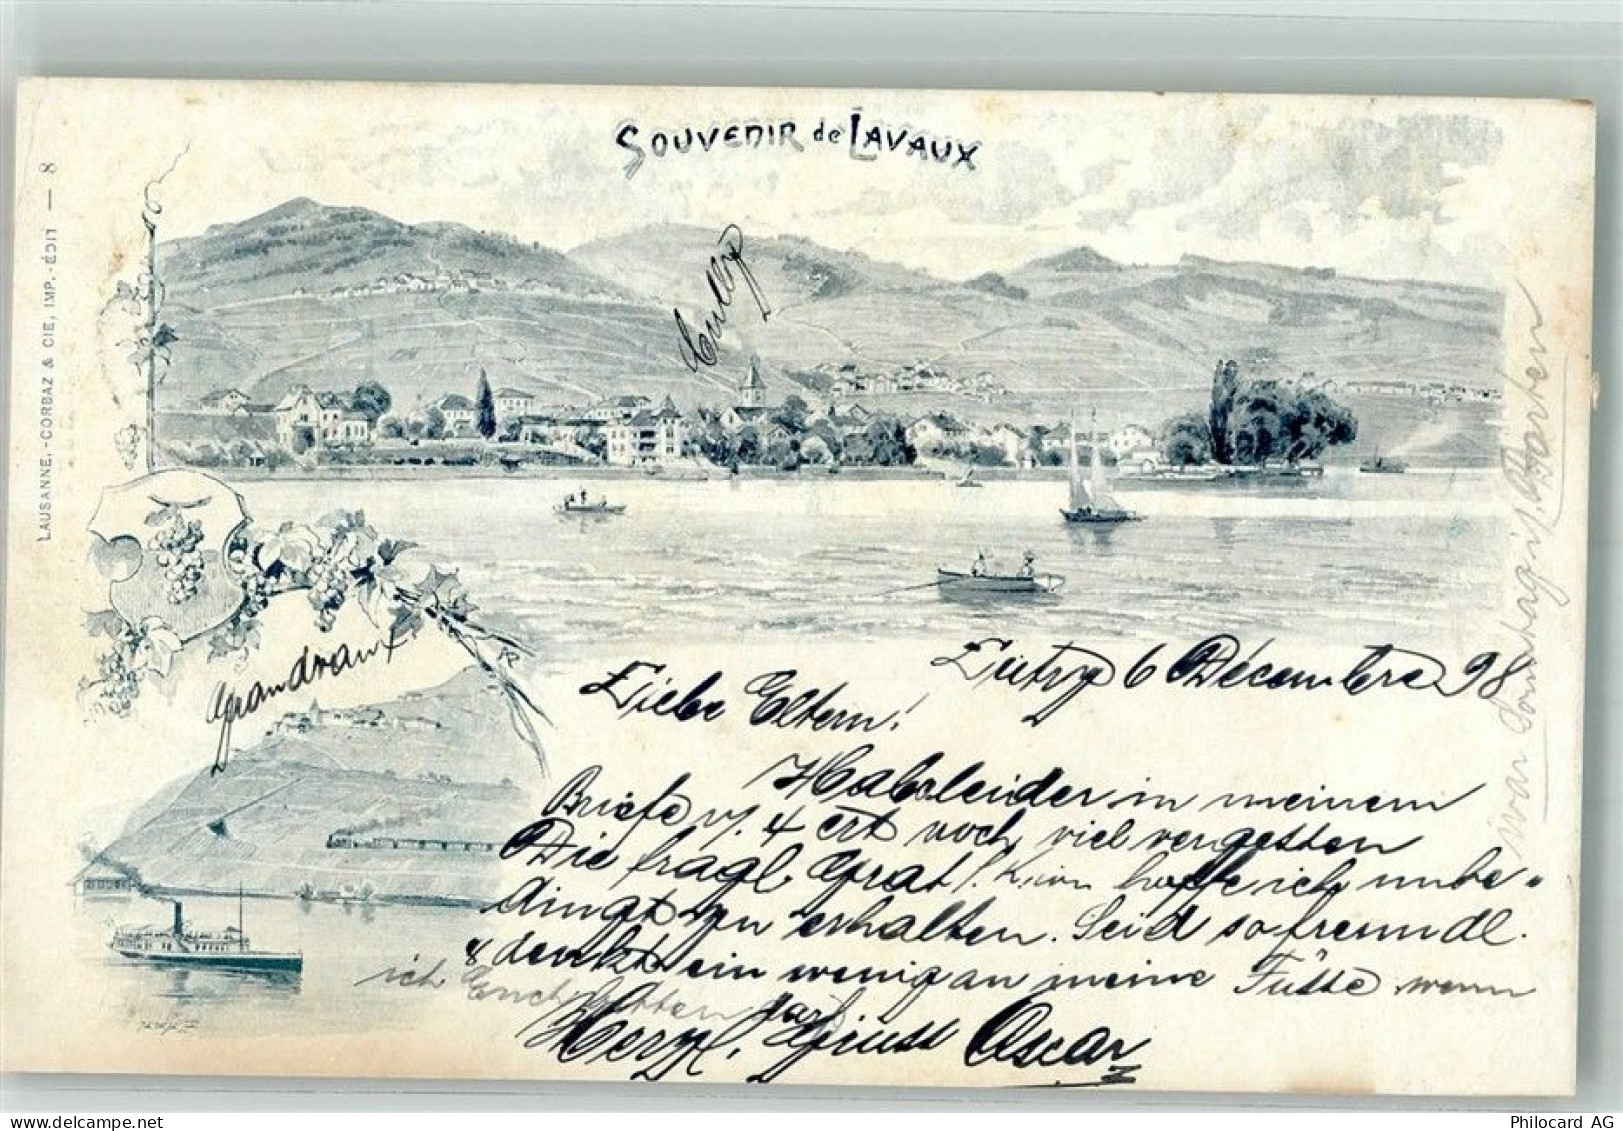 SOUVENIR de LAVAUX
LAUSANNE.-CORBAZ & CIE, IMP.-ÉDIT — 8
Cully
Grandvaux
Lutry 6 Décembre 98
Liebe Eltern!
Hab leider in meinem
Briefe v. 4 ert noch viel vergessen
Die fragl. Grat. k. nun hoffe ich unbe-
dingt zu erhalten. Seid so freundl.
& denkt ein wenig an meine Füsse wenn
ich Euch bitten darf
Herzl. Gruss Oscar
war Sonntag in
Philocard AG